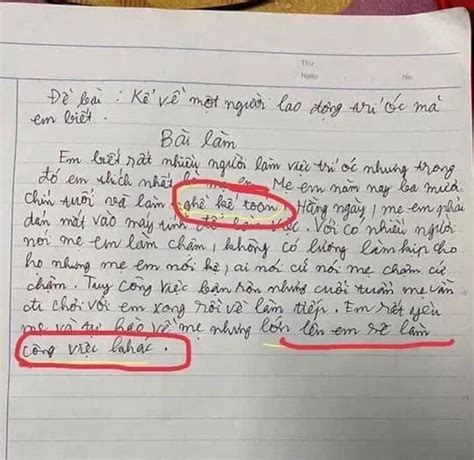 Thứ
Ngày No.
Đề bài : Kể về một người lao động trí óc mà
em biết.
Bài làm
Em biết rất nhiều người làm việc trí óc nhưng trong
đó em thích nhất là mẹ em. Mẹ em năm nay ba mươi
chín tuổi và làm nghề kế toán. Hằng ngày, mẹ em phải
dán mắt vào máy tính để làm việc. Với co nhiều người
nói mẹ em làm chậm, không có lương làm kịp cho
họ nhưng mẹ em mới kệ, ai nói cứ nói mẹ chậm cứ
chậm. Tuy công việc bận rộn nhưng cuối tuần mẹ vẫn
đi chơi với em xong rồi về làm tiếp. Em rất yêu
mẹ và tự hào về mẹ nhưng lớn lên em sẽ làm
công việc khác.